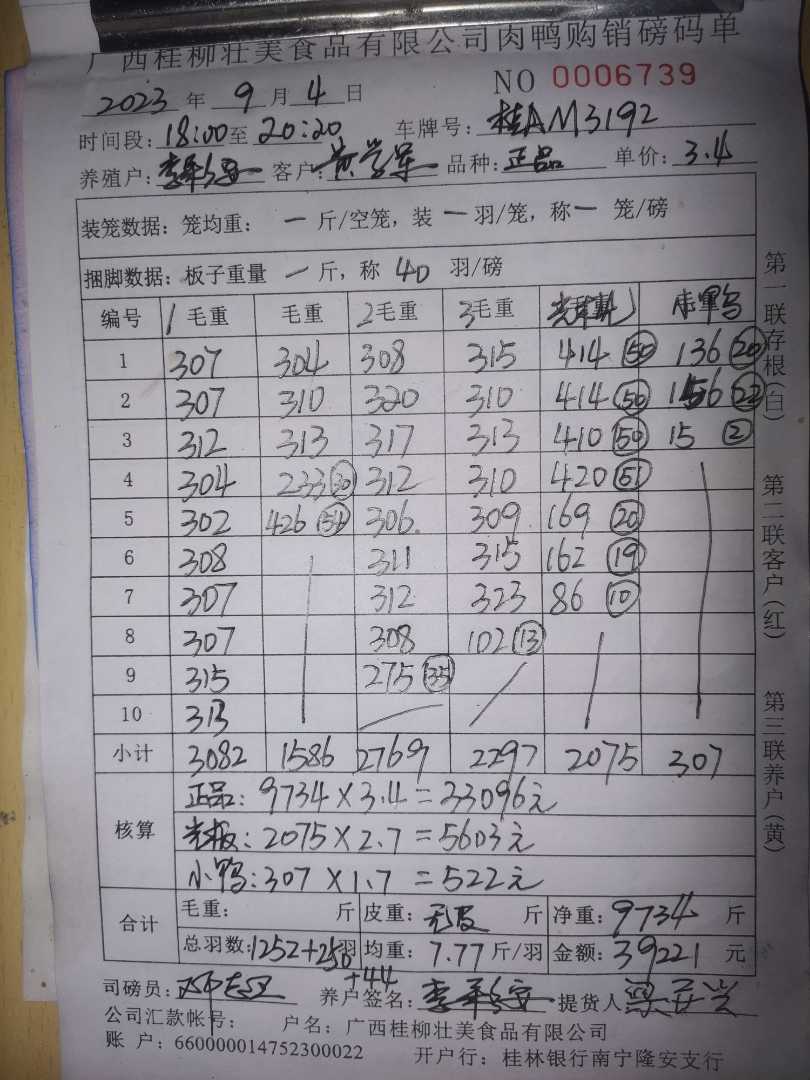 广西桂柳壮美食品有限公司肉鸭购销磅码单
2023 年 9 月 4 日 NO 0006739
时间段: 18:00 至 20:20 车牌号: 桂AM3192
养殖户: 客户: 黄学军 品种: 正品 单价: 3.4
装笼数据: 笼均重: 一 斤/空笼, 装 一 羽/笼, 称 一 笼/磅
捆脚数据: 板子重量 一 斤, 称 40 羽/磅
编号 1毛重 毛重 2毛重 3毛重
1 307 304 308 315 414 (50) 136 (20)
2 307 310 320 310 414 (50) 156 (22)
3 312 313 317 313 410 (50) 15 (2)
4 304 233 (30) 312 310 420 (51)
5 302 426 (54) 306. 309 169 (20)
6 308 311 315 162 (19)
7 307 312 323 86 (10)
8 307 308 102 (13)
9 315 275 (35)
10 313
小计 3082 1586 2769 2297 2075 307
核算 正品: 9734 × 3.4 = 33096元
光板: 2075 × 2.7 = 5603元
小鸭: 307 × 1.7 = 522元
合计 毛重: 斤 皮重: 无皮 斤 净重: 9734 斤
总羽数: 1252+250 羽 均重: 7.77 斤/羽 金额: 39221 元
+44
司磅员: 养户签名: 提货人
公司汇款帐号: 户名: 广西桂柳壮美食品有限公司
账 户: 660000014752300022 开户行: 桂林银行南宁隆安支行
第一联存根(白)
第二联客户(红)
第三联养户(黄)